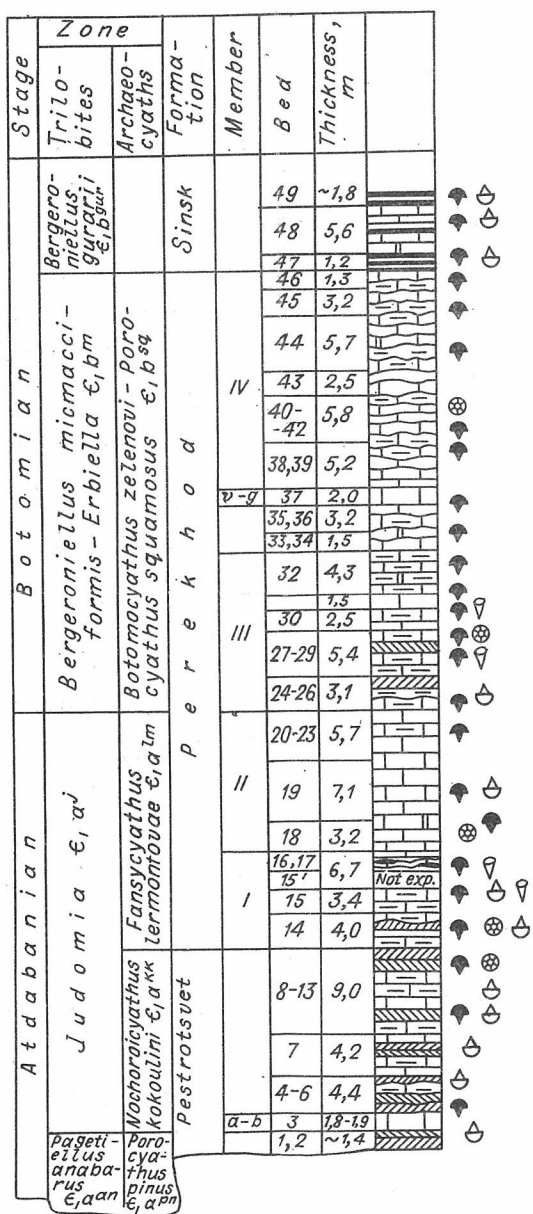 Stage
Zone
Trilo-
bites
Archaeo-
cyaths
Forma-
tion
Member
Bed
Thickness,
m
Botomian
Atdabanian
Bergero-
niellus
gurarii
Є₁bgur
Bergeroniellus micmacci-
formis-Erbiella Є₁bm
Judomia Є₁aj
Pageti-
ellus
anaba-
rus
Є₁aan
Botomocyathus zelenovi-Poro-
cyathus squamosus Є₁bsq
Fansycyathus
lermontovae Є₁alm
Nochoroicyathus
kokoulini Є₁akk
Poro-
cya-
thus
pinus
Є₁apn
Sinsk
Perekhod
Pestrotsvet
IV
v-g
III
II
I
a-b
49 ~1,8
48 5,6
47 1,2
46 1,3
45 3,2
44 5,7
43 2,5
40-
-42 5,8
38,39 5,2
37 2,0
35,36 3,2
33,34 1,5
32 4,3
1,5
30 2,5
27-29 5,4
24-26 3,1
20-23 5,7
19 7,1
18 3,2
16,17 6,7
15' Not exp.
15 3,4
14 4,0
8-13 9,0
7 4,2
4-6 4,4
3 1,8-1,9
1,2 ~1,4